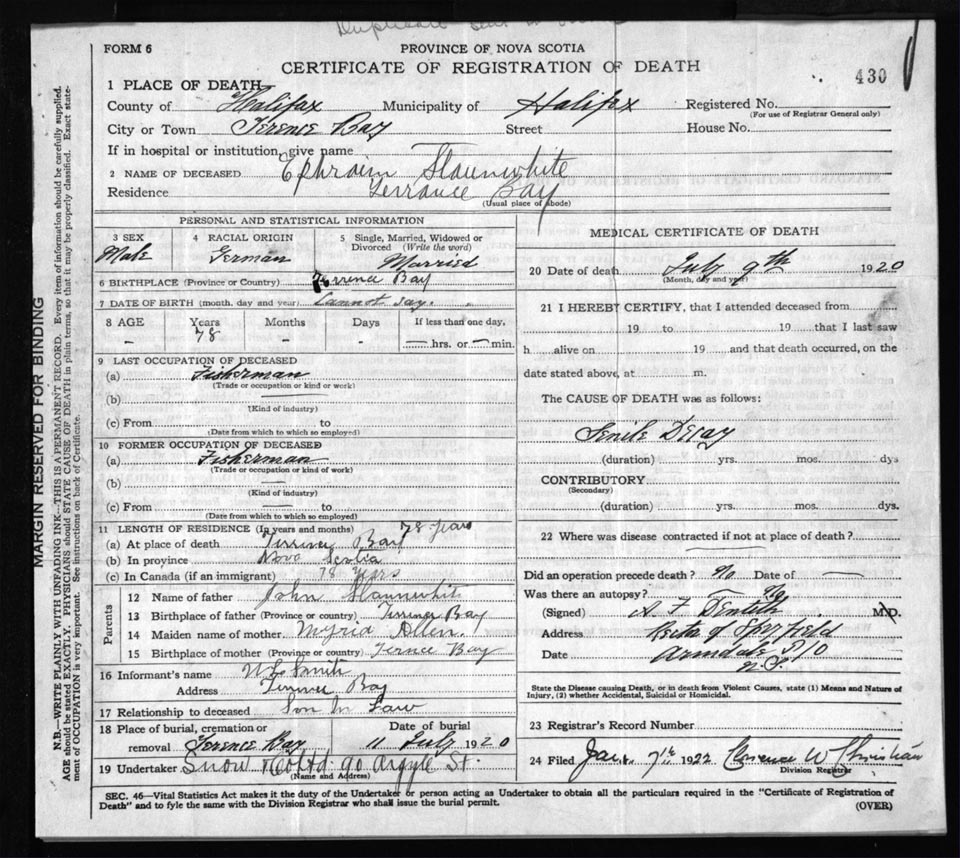 Duplicate Sent to
FORM 6
PROVINCE OF NOVA SCOTIA
CERTIFICATE OF REGISTRATION OF DEATH
430
1 PLACE OF DEATH
County of Halifax Municipality of Halifax Registered No.
(For use of Registrar General only)
City or Town Terence Bay Street House No.
If in hospital or institution, give name
2 NAME OF DECEASED Ephraim Slaunwhite
Residence Terrance Bay
(Usual place of abode)
PERSONAL AND STATISTICAL INFORMATION
3 SEX 4 RACIAL ORIGIN 5 Single, Married, Widowed or Divorced (Write the word)
Male German Married
6 BIRTHPLACE (Province or Country) Terence Bay
7 DATE OF BIRTH (month, day and year) Cannot say.
8 AGE Years Months Days If less than one day,
– 78 – - — hrs. or — min.
9 LAST OCCUPATION OF DECEASED
(a) Fisherman
(Trade or occupation or kind or work)
(b)
(Kind of industry)
(c) From to
(Date from which to which so employed)
10 FORMER OCCUPATION OF DECEASED
(a) Fisherman
(Trade or occupation or kind of work)
(b) —
(Kind of industry)
(c) From — to
(Date from which to which so employed)
11 LENGTH OF RESIDENCE (In years and months) 78 years
(a) At place of death Terrence Bay
(b) In province Nova Scotia
(c) In Canada (if an immigrant) 78 years
Parents
12 Name of father John Slaunwhit
13 Birthplace of father (Province or country) Terrence Bay
14 Maiden name of mother Myria Allen.
15 Birthplace of mother (Province or country) Ternce Bay
16 Informant's name Smith
Address Terrence Bay
17 Relationship to deceased Son in Law
18 Place of burial, cremation or removal Terence Bay
Date of burial
11 July 1920
19 Undertaker Snow & Co Ltd 90 Argyle St.
(Name and Address)
MEDICAL CERTIFICATE OF DEATH
20 Date of death July 9th 1920
(Month, day and year)
21 I HEREBY CERTIFY, that I attended deceased from
19 to 19 that I last saw
h alive on 19 and that death occurred, on the
date stated above, at m.
The CAUSE OF DEATH was as follows:
Senile Decay
(duration) yrs. mos. dys
CONTRIBUTORY
(Secondary)
(duration) yrs. mos. dys.
22 Where was disease contracted if not at place of death?
Did an operation precede death? No Date of —
Was there an autopsy? — No
(Signed) A F M.D.
Address Rector of
Date Armdale P/O
N.S.
State the Disease causing Death, or in death from Violent Causes, state (1) Means and Nature of
Injury, (2) whether Accidental, Suicidal or Homicidal.
23 Registrar's Record Number
24 Filed Jan. 7th 1922 Clarence W Christian
Division Registrar
SEC. 46—Vital Statistics Act makes it the duty of the Undertaker or person acting as Undertaker to obtain all the particulars required in the "Certificate of Registration of
Death" and to fyle the same with the Division Registrar who shall issue the burial permit.
(OVER)
MARGIN RESERVED FOR BINDING
N.B.—WRITE PLAINLY WITH UNFADING INK—THIS IS A PERMANENT RECORD. Every item of information should be carefully supplied.
AGE should be stated EXACTLY. PHYSICIANS should STATE CAUSE OF DEATH in plain terms, so that it may be properly classified. Exact state-
ment of OCCUPATION is very important. See instructions on back of Certificate.